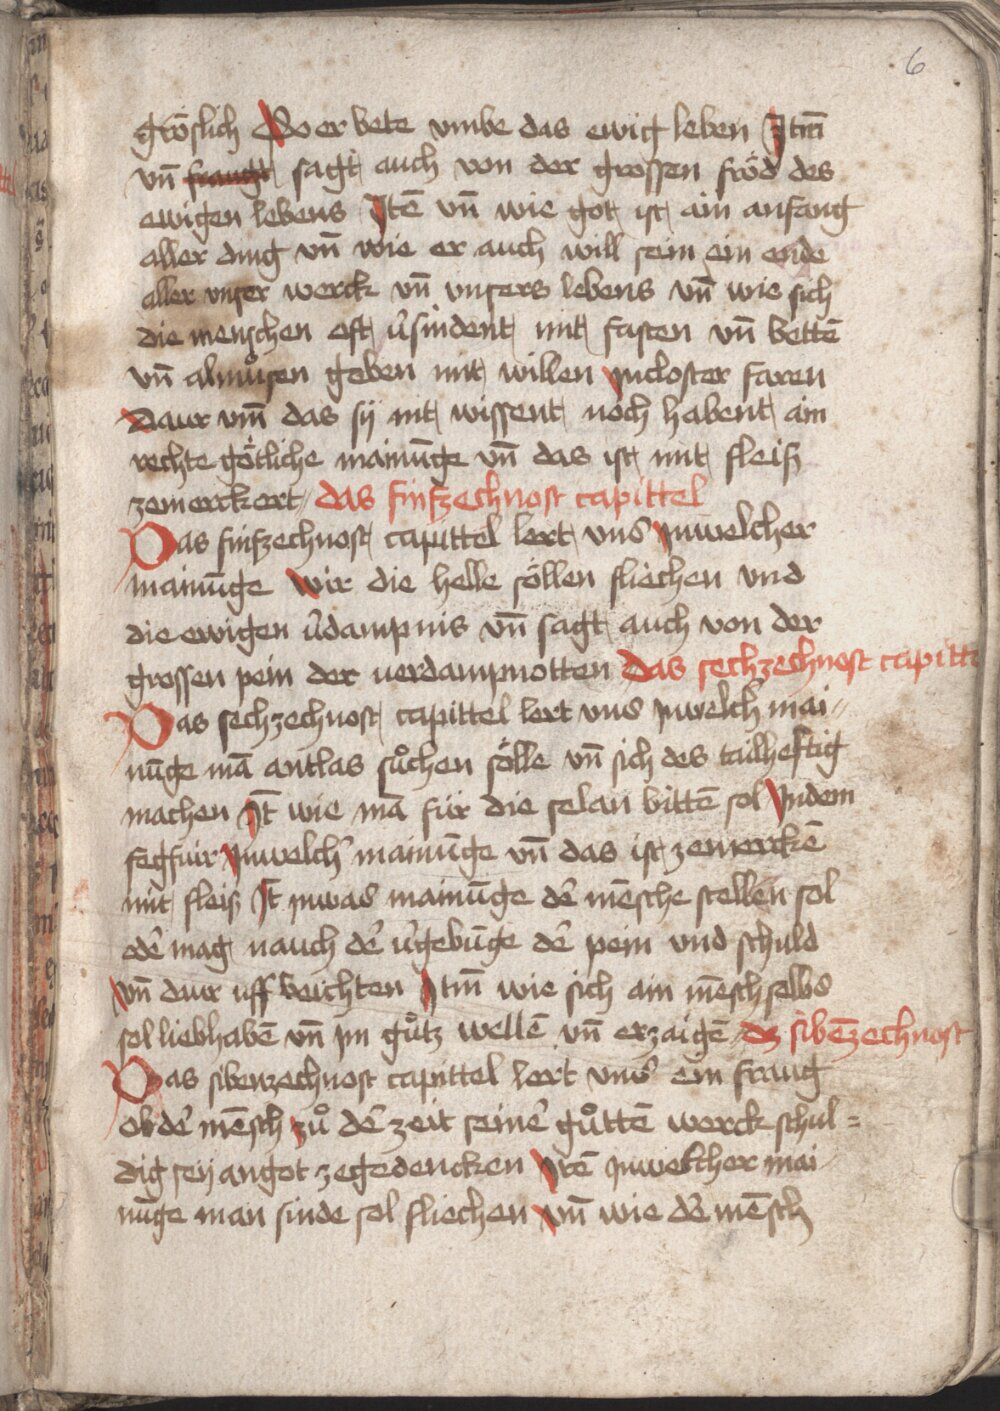 6
gröslich So er bete vmbe das ewig leben Itm̄
vn̄ fraugt sagt auch von der grossen fröd des
ewigen lebens Itē vn̄ wie got ist ain anfang
aller ding vn̄ wie er auch will sein ein ende
aller vnser werck vn̄ vnsers lebens vn̄ wie sich
die menschen oft v̉sindent mit fasten vn̄ bettē
vn̄ almůsen geben mit willen Incloster faren
Daur vm̄ das sÿ nit wissent noch habent ain
rechte götliche mainūge vn̄ das ist mit fleiß
zemerckert das finfzechnost capittel
Das finfzechnost capittel lert vns Inwelcher
mainūge wir die helle söllen fliechen vnd
die ewigen v̉dampnis vn̄ sagt auch von der
grossen pein der uerdampnotten Das sechzechnost capitte
Das sechzechnost capittel lert vns Inwelch̉ mai-
nūge mā antlas sůchen sölle vn̄ sich des tailheftig
machen It̄ wie mā für die selan bittē sol Indem
fegfuir Inwelch̉ mainūge vn̄ das ist zemerckē
mit fleiß It̄ Inwas mainūge dē mēsche stellen sol
odē mag nauch dē v̉gebūge dē pein vnd schuld
vn̄ dar uff beichten Itm̄ wie sich ain mēsch selbs
sol liebhabē vn̄ Im gůtz wellē vn̄ erzaigē dz sibēzechnost
Das sibenzechnost capittel lert vns ein fraug
ob dē mēsch zů dē zeit seinē gůttē werck schul=
dig seÿ an got zegedencken Itē Inwelcher mai
nūge man sinde sol fliechen vn̄ wie dē mēsch